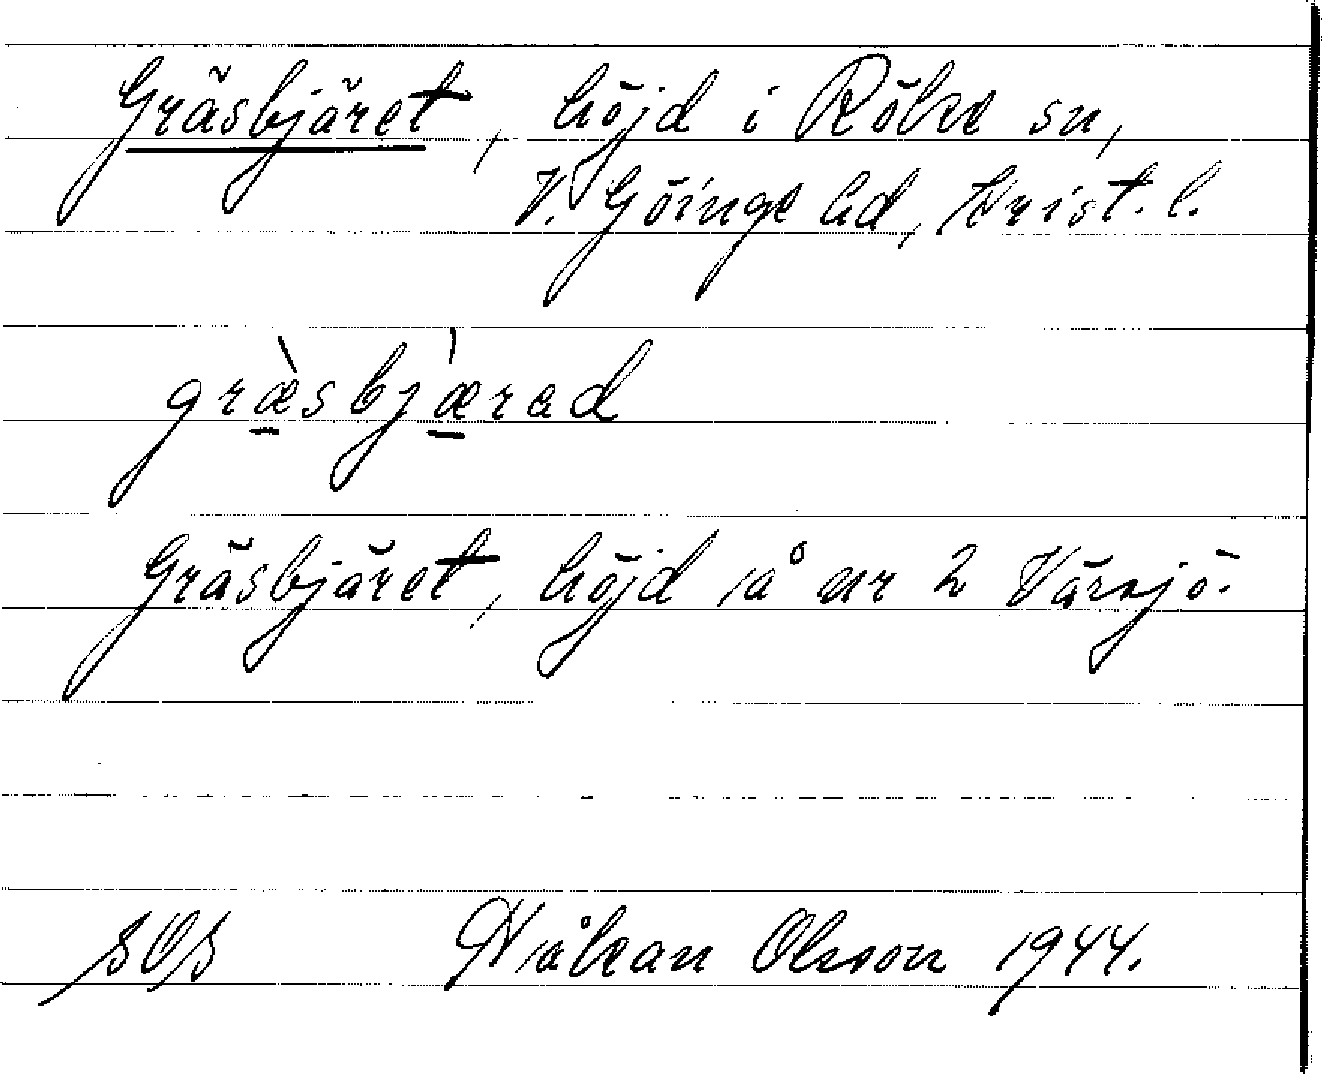 Gräsbjäret, höjd i Röke sn,
V. Göinge hd, Krist. l.
græ̀sbjæ̀rad
Gräsbjäret, höjd å nr 2 Värsjö.
SOS Håkan Olsson 1944.